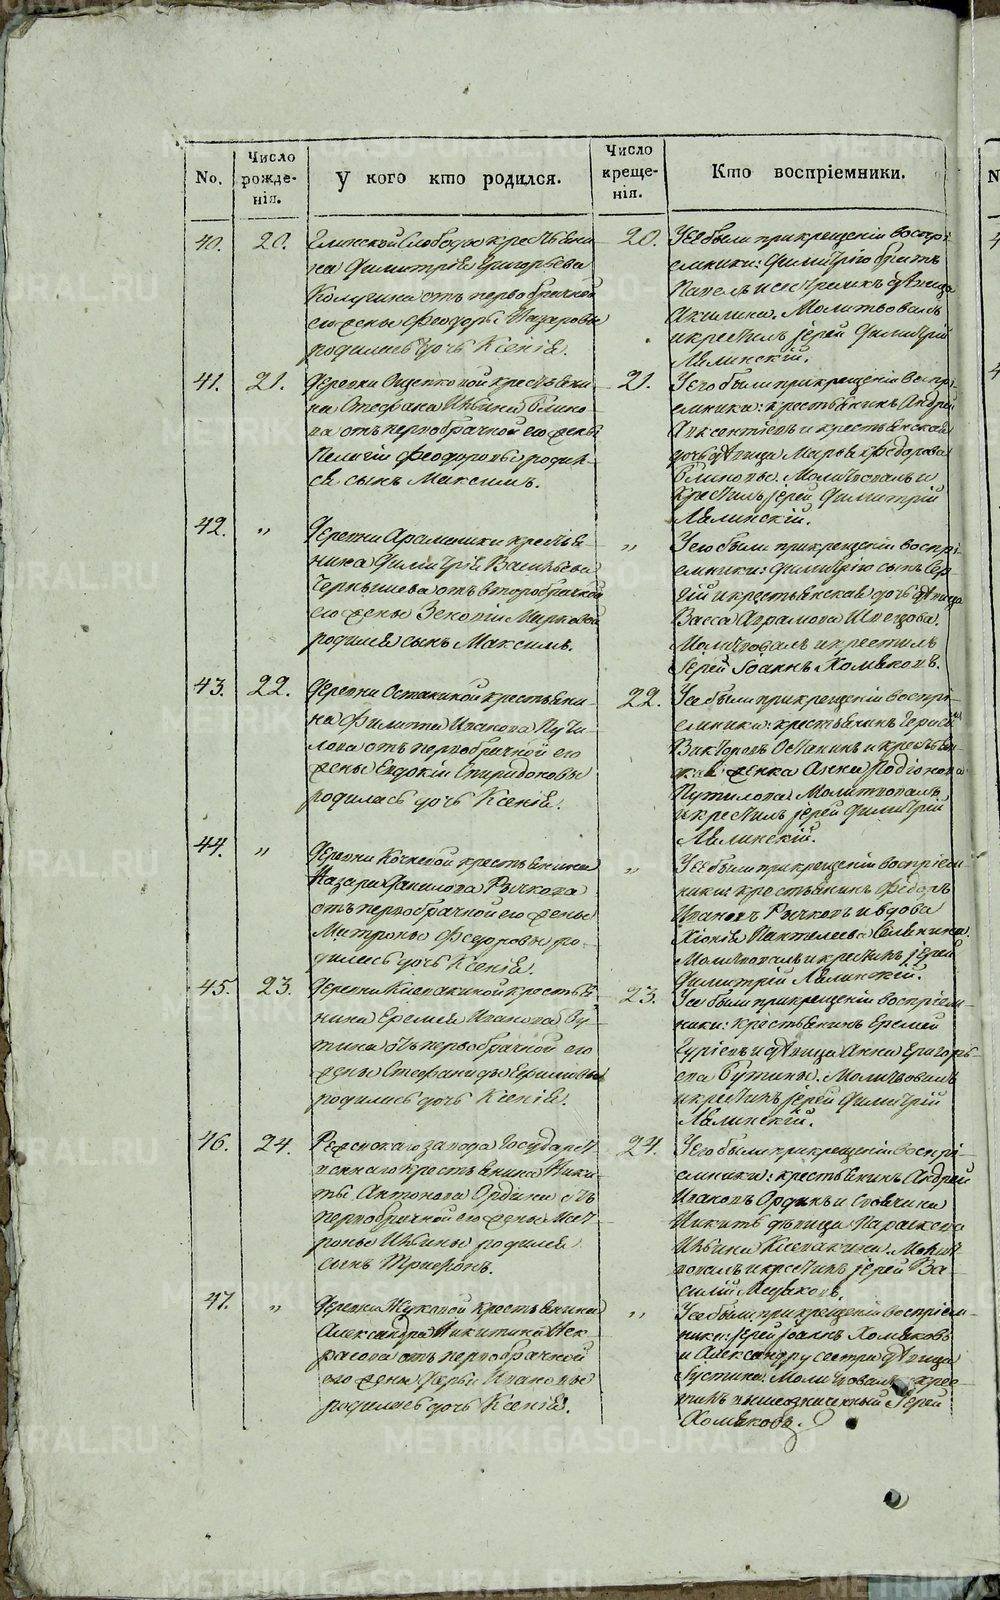 No.
Число рожде-нія.
У кого кто родился.
Число креще-нія.
Кто воспріемники.
40.
20.
Елинской Слободы крестьяни-
на Димитрія Григорьева
Калугина отъ первобрачной
его жены Феодоры Назаровы
родилась дочь Ксенія.
20.
У ее были при крещеніи воспрі-
емники: Димитрію братъ
Павелъ и сестреникъ дѣвица
Акилина. Молитвовалъ
и крестилъ іерей Димитрій
Лялинскій.
41.
21.
Деревни Ощепковой крестьяни-
на Стефана Ильина Блино-
ва отъ первобрачной его жены
Пелагіи Феодоровы родил-
ся сынъ Максимъ.
21.
У его были при крещеніи воспрі-
емники: крестьянинъ Андрей
Авксентіевъ и крестьянская
дочь дѣвица Марья Ѳедорова
Блиновы. Молитвовалъ и
крестилъ іерей Димитрій
Лялинскій.
42.
"
Деревни Арамашки крестья-
нина Димитрія Васильева
Чернышева отъ второбрачной
его жены Зеновіи Марковой
родился сынъ Максимъ.
"
У его были при крещеніи воспрі-
емники: Димитрію сынъ Сер-
гій и крестьянская дочь дѣвица
Васса Аврамова Швецова.
Молитвовалъ и крестилъ
Іерей Іоаннъ Хомяковъ.
43.
22.
Деревни Останиной крестьяни-
на Филиппа Иванова Пути-
лова отъ первобрачной его
жены Евдокіи Спиридоновы
родилась дочь Ксенія.
22.
У ее были при крещеніи воспрі-
емники: крестьянинъ Герасимъ
Викторовъ Останинъ и крестьян-
ская женка Анна Родіонова
Путилова. Молитвовалъ
и крестилъ іерей Димитрій
Лялинскій.
44.
"
Деревни Кочневой крестьянина
Назара Данилова Рычкова
отъ первобрачной его жены
Матроны Федоровы ро-
дилась дочь Ксенія.
"
У ее были при крещеніи воспріем-
ники: крестьянинъ Ѳедоръ
Ивановъ Рычковъ и вдова
Хіонія Пантелеева
Молитвовалъ и крестилъ іерей
Димитрій Лялинскій.
45.
23.
Деревни Клевакиной крестья-
нина Еремея Иванова Бу-
тина отъ первобрачной его
жены Стефаниды Ефимовы
родилась дочь Ксенія.
23.
У ее были при крещеніи воспріем-
ники: крестьянинъ Еремей
Гуріевъ и дѣвица Анна Григорь-
ева Бутины. Молитвовалъ
и крестилъ іерей Димитрій
Лялинскій.
46.
24.
Режевскаго завода Государст-
веннаго крестьянина Ники-
ты Антонова Ордина отъ
первобрачной его жены Мат-
роны Ильины родился
сынъ Трифонъ.
24.
У его были при крещеніи воспрі-
емники: крестьянинъ Андрей
Ивановъ Ординъ и
Никитѣ дѣвица Параскева
Ильина Клевакина. Молит-
вовалъ и крестилъ іерей Ва-
силій
47.
"
Деревни Жуковой крестьянина
Александра Никитина Нек-
расова отъ первобрачной
его жены Дарьи Ивановы
родилась дочь Ксенія.
"
У ее были при крещеніи воспріем-
ники: іерей Іоаннъ Хомяковъ
и Александру сестра дѣвица
Іустина. Молитвовалъ и крес-
тилъ вышеозначенный Іерей
Хомяковъ.
METRIKI.GASO-URAL.RU